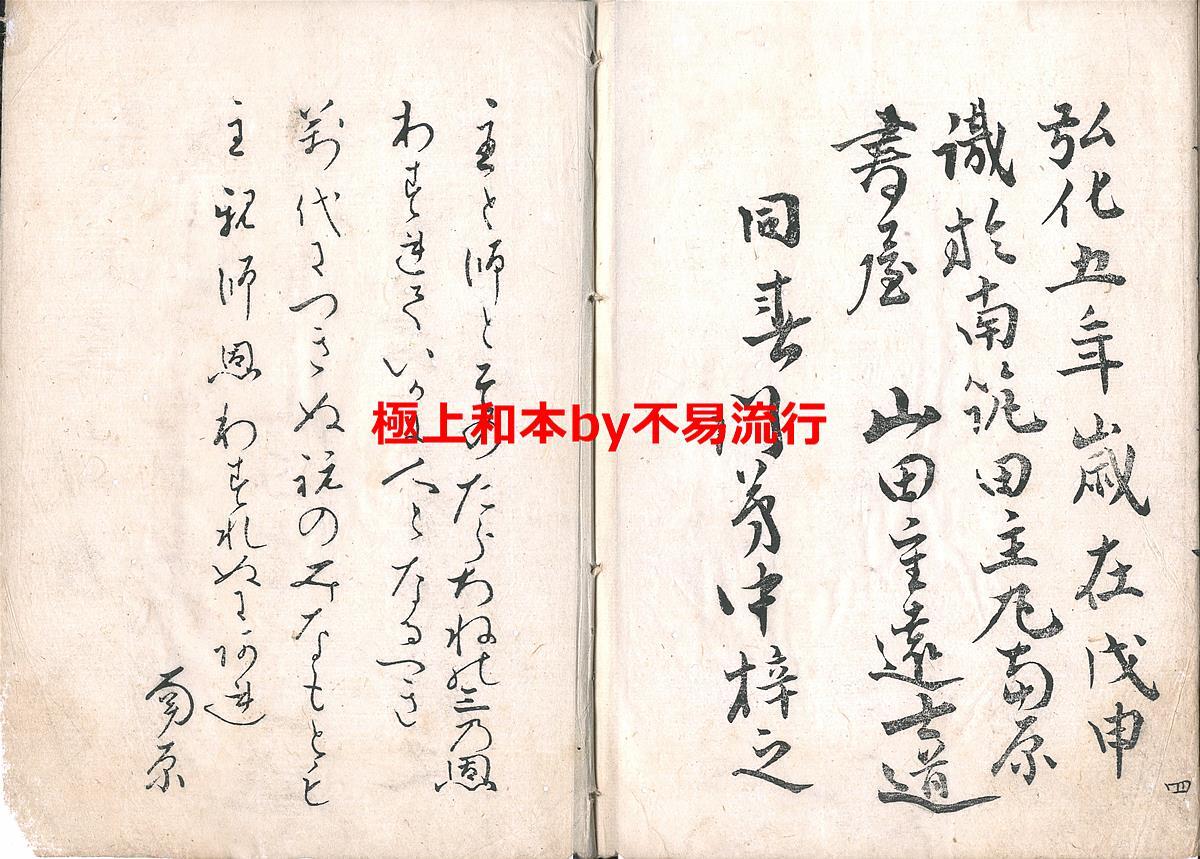 弘化五年歳在戊申
識於南筑田主丸南原
書屋 山田重遠士道
同春門弟中梓之
四
主と師と たらちねの三乃恩
わすれていか 人となるへき
萬代につきぬ祝のみなもとと
主親師恩わすれぬにあれ
南原
極上和本by不易流行